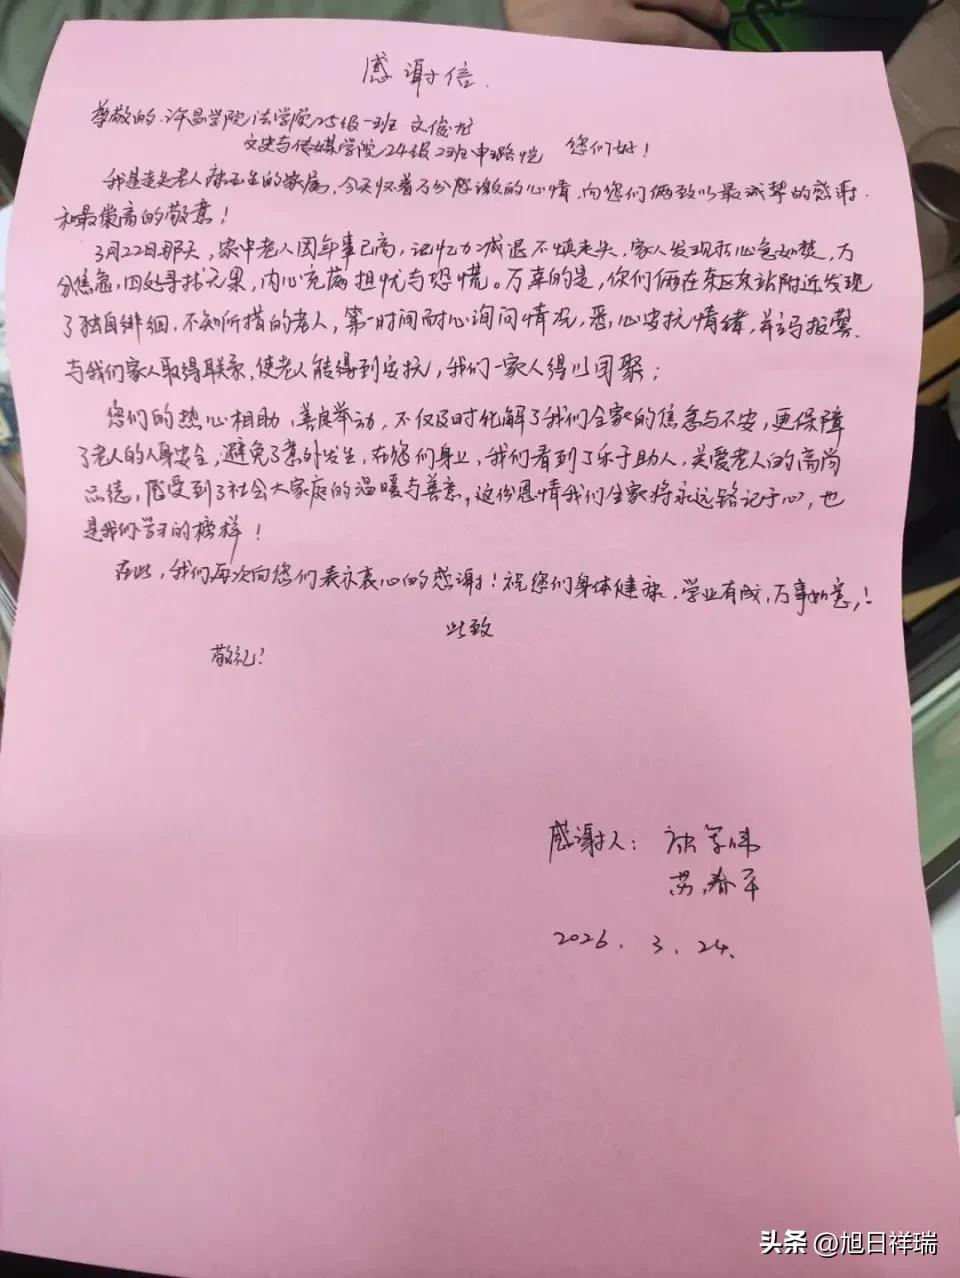 感谢信.
尊敬的.许昌学院法学院25级一班 文俊龙
文史与传媒学院24级2班申璐恺 您们好！
我是走失老人 的家属，今天怀着万份感激的心情.向您们俩致以最诚挚的感谢.
和最崇高的敬意！
3月22日那天，家中老人因年事已高，记忆力减退不慎走失，家人发现后心急如焚，万
分焦急，四处寻找无果，内心充满担忧与恐慌。万幸的是，你们俩在东区东站附近发现
了独自徘徊.不知所措的老人，第一时间耐心询问情况，悉心安抚情绪，并马报警.
与我们家人取得联系，使老人能得到安抚，我们一家人得以团聚；
您们的热心相助，善良举动，不仅及时化解了我们全家的焦急与不安，更保障
了老人的人身安全，避免了意外发生，在您们身上，我们看到了乐于助人，关爱老人的高尚
品德，感受到了社会大家庭的温暖与善意，这份恩情我们全家将永远铭记于心，也
是我们学习的榜样！
在此，我们再次向您们表示衷心的感谢！祝您们身体健康，学业有成，万事如意！
此致
敬礼！
感谢人：
苏春平
2026.3.24.
头条 @旭日祥瑞